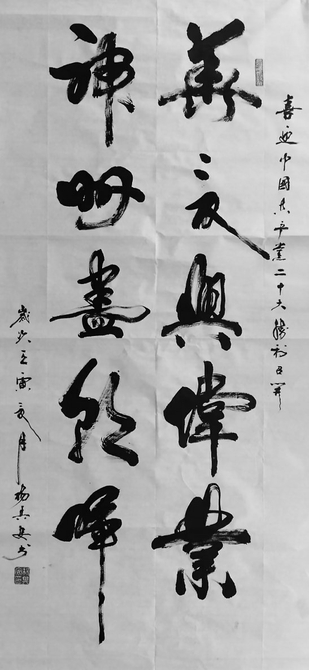 喜迎中國共产黨二十大勝利召開
華夏興偉業
神州盡朝暉
歲次壬寅夏月楊书